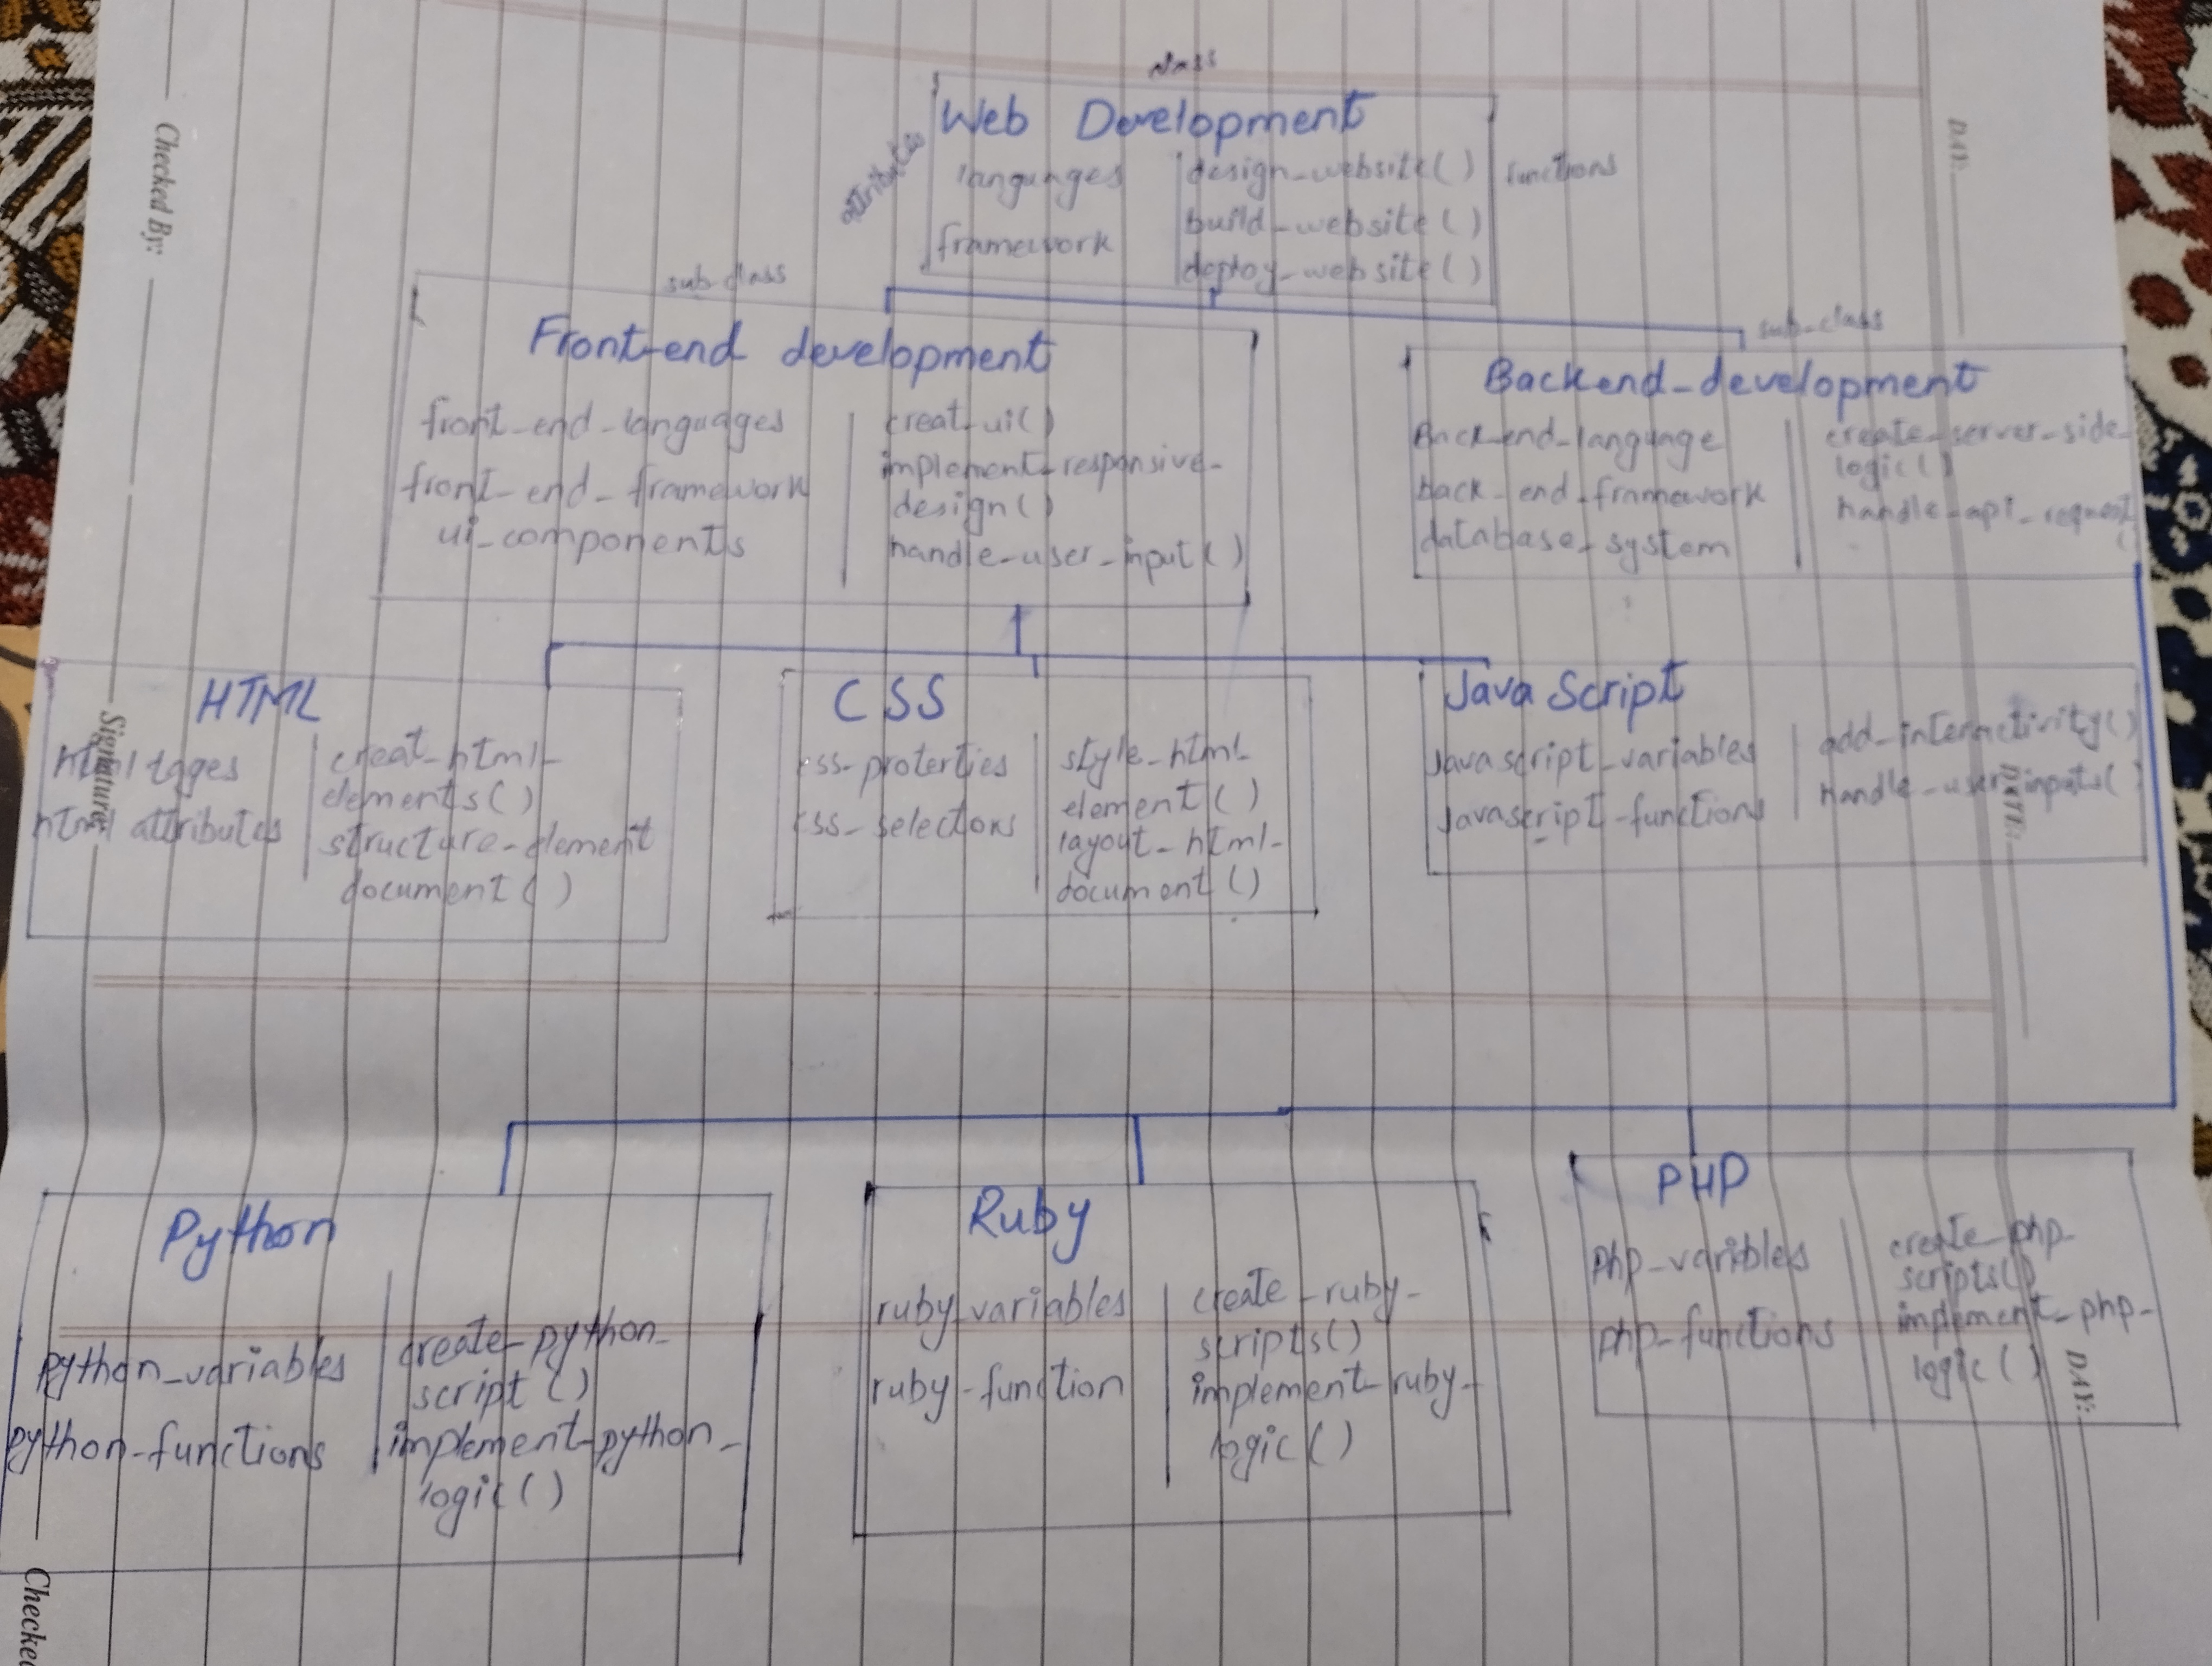 class
Web Development
attributes
languages
framework
design_website()
build_website()
deploy_website()
functions
sub class
Front-end development
front_end_languages
front_end_framework
ui_components
creat_ui()
implement_responsive_
design()
handle_user_input()
sub_class
Backend_development
Back_end_language
back_end_framework
database_system
create_server_side_
logic()
handle_api_request
()
HTML
html tages
html attributes
creat_html_
elements()
structure_element
document()
CSS
css_proterties
css_selectors
style_html_
element()
layout_html_
document()
Java Script
Javascript_variables
Javascript_functions
add_interactivity()
handle_user_inputs()
Python
python_variables
python_functions
create_python_
script()
implement_python_
logic()
Ruby
ruby_variables
ruby_function
create_ruby_
scripts()
implement_ruby_
logic()
PHP
php_variables
php_functions
create_php_
scripts()
implement_php_
logic()
Checked By:
Signature:
Checked
DAY:
DATE:
DAY: